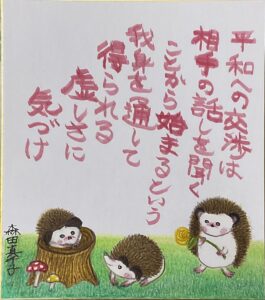 平和への交渉は
相手の話しを聞く
ことから始まるという
我身を通して
得られる
虚しさに
気づけ
森田真千子